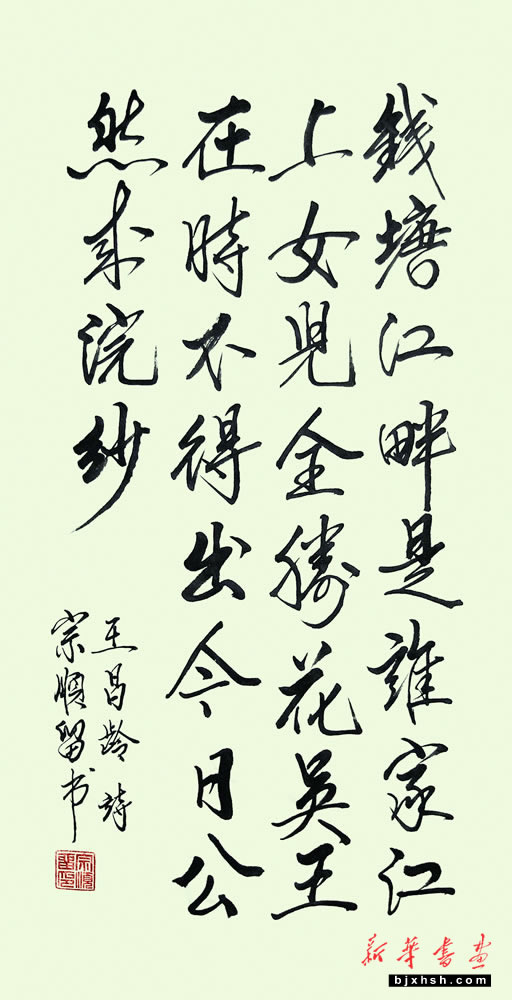 錢塘江畔是誰家江
上女兒全勝花吳王
在時不得出今日公
然來浣紗
王昌齡詩
宗順留书
新華書畫
bjxhsh.com